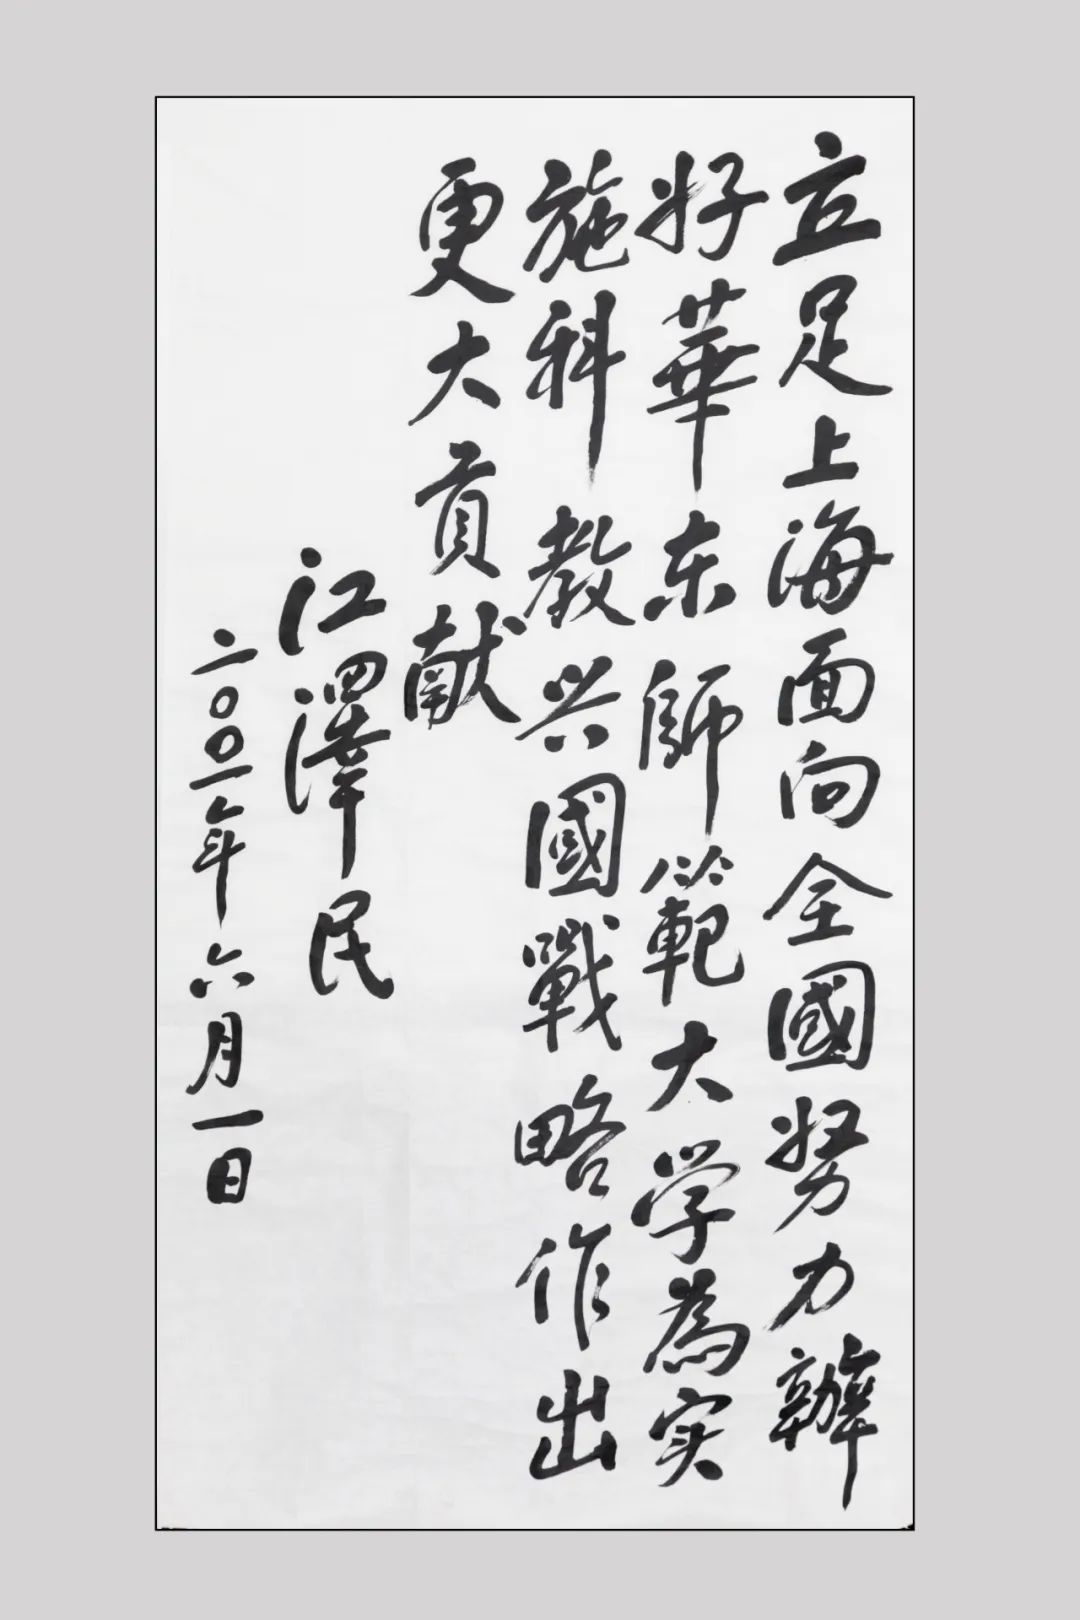 立足上海面向全國努力辦
好華东師範大学為实
施科教兴國戰略作出
更大貢献
江澤民
二〇〇一年六月一日